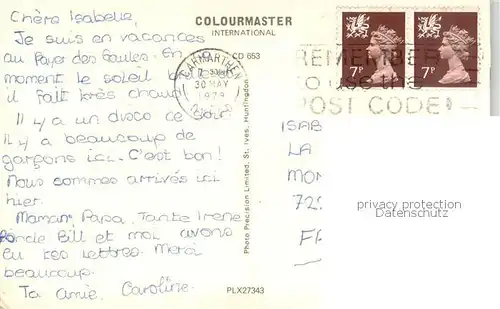 Chère Isabelle,
Je suis en vacances
au Pays des Gaulles. En
moment le soleil
il fait très chaud
Il y a un disco ce soir
Il y a beaucoup de
garçons ici. C'est bon!
Nous sommes arrivés ici
hier.
Maman, Papa, Tante Irene
Bill et moi avons
eu tes lettres. Merci
beaucoup.
Ta amie, Caroline.
COLOURMASTER
INTERNATIONAL
CD 653
CARMARTHEN
30 MAY
1979
Photo Precision Limited, St. Ives, Huntingdon
PLX27343
7P
7P
REMEMBER
use the
POST CODE!
ISAB
LA
MO
72
F
privacy protection
Datenschutz